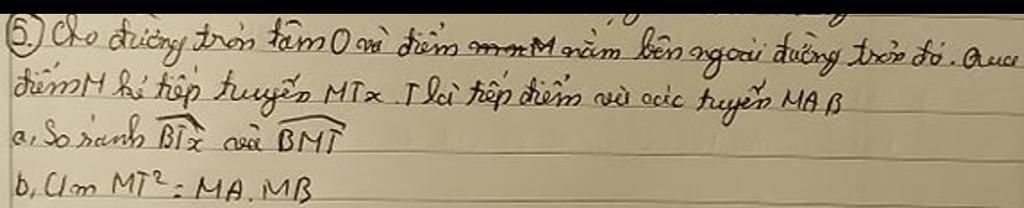 5. Cho đường tròn tâm O và điểm M nằm bên ngoài đường tròn đó. Qua
điểm M kẻ tiếp tuyến MTx. T là tiếp điểm và các tuyến MAB
a, So sánh BTx và BMT
b, C/m MT² = MA. MB